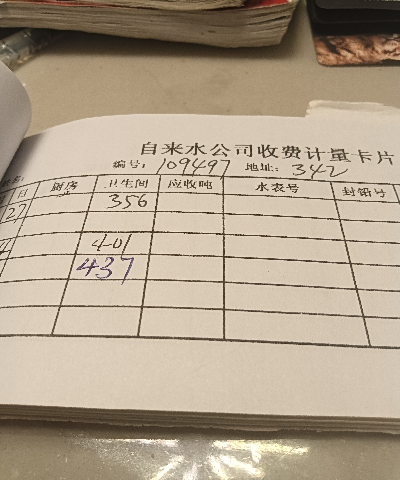 自来水公司收费计量卡片
编号: 109497 地址: 342
日 厨房 卫生间 应收吨 水表号 封铅号
27 356
401
437